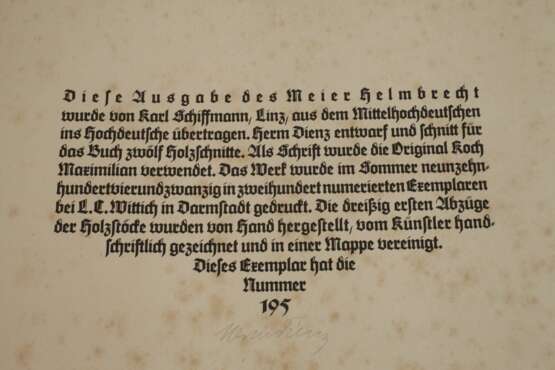 Diese Ausgabe des Meier Helmbrecht
wurde von Karl Schiffmann, Linz, aus dem Mittelhochdeutschen
ins Hochdeutsche übertragen. Herm Dienz entwarf und schnitt für
das Buch zwölf Holzschnitte. Als Schrift wurde die Original Koch
Maximilian verwendet. Das Werk wurde im Sommer neunzehn-
hundertvierundzwanzig in zweihundert numerierten Exemplaren
bei L.C. Wittich in Darmstadt gedruckt. Die dreißig ersten Abzüge
der Holzstöcke wurden von Hand hergestellt, vom Künstler hand-
schriftlich gezeichnet und in einer Mappe vereinigt.
Dieses Exemplar hat die
Nummer
195